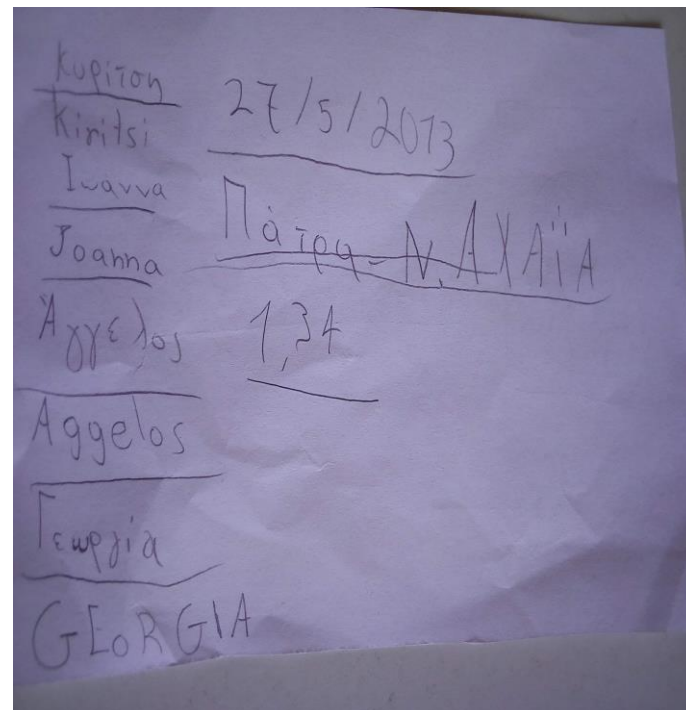 Κυρίτση
Kiritsi
Ιωαννα
Joanna
Άγγελος
Aggelos
Γεωργία
GEORGIA
27/5/2013
Πάτρα - Ν. ΑΧΑΪΑ
1,34